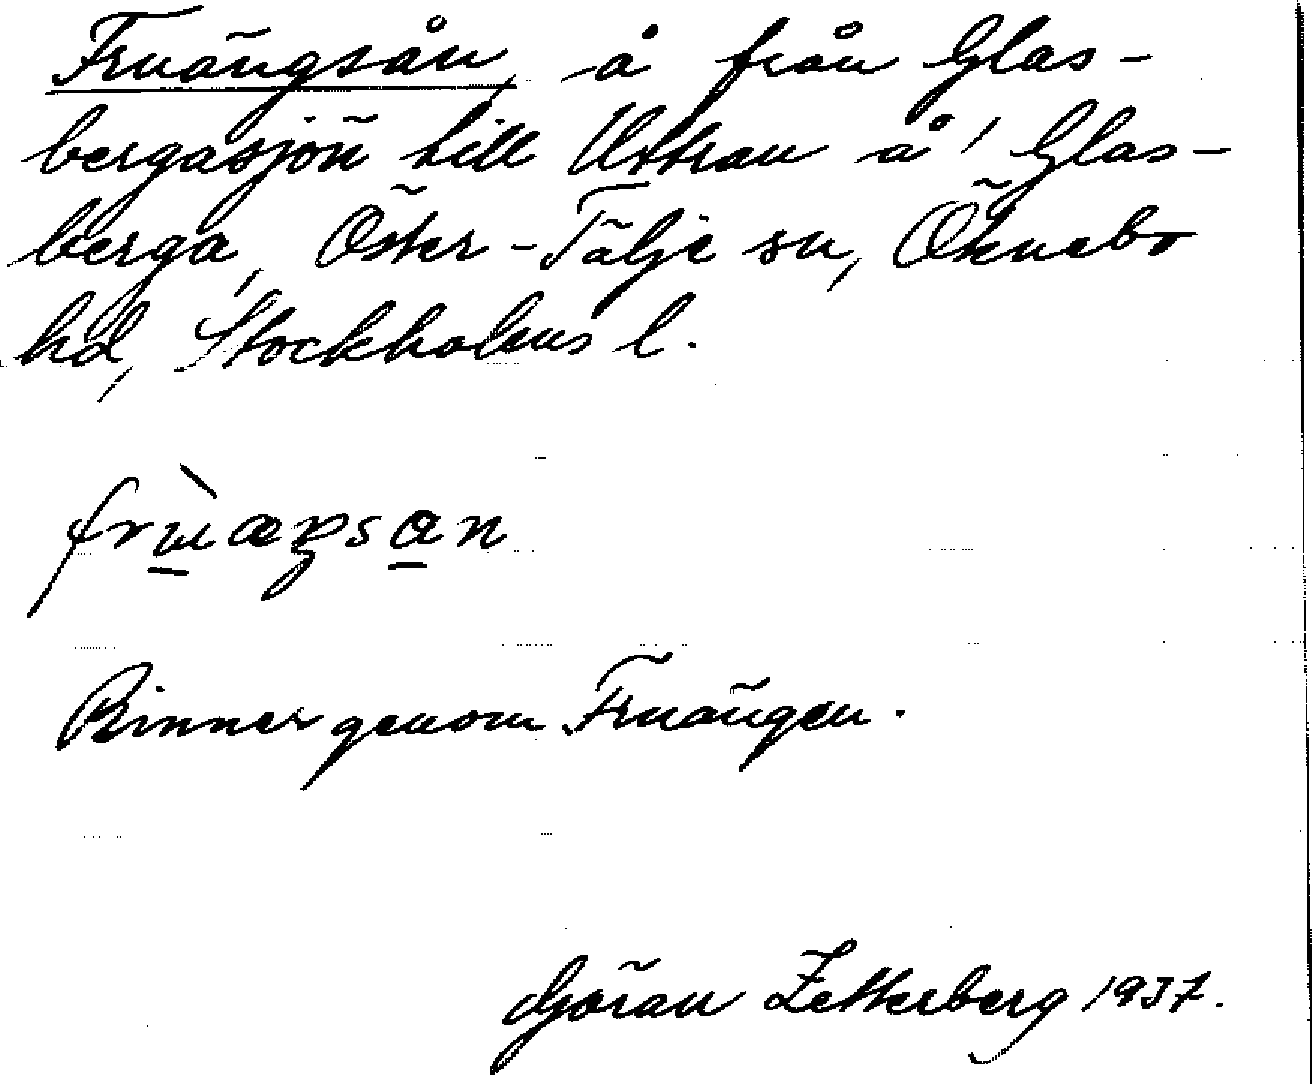 Fruängsån, å från Glas-
bergasjön till Uttran å Glas-
berga, Öster-Tälje sn, Öknebo
hd, Stockholms l.
Rinner genom Fruängen.
Göran Zetterberg 1937.